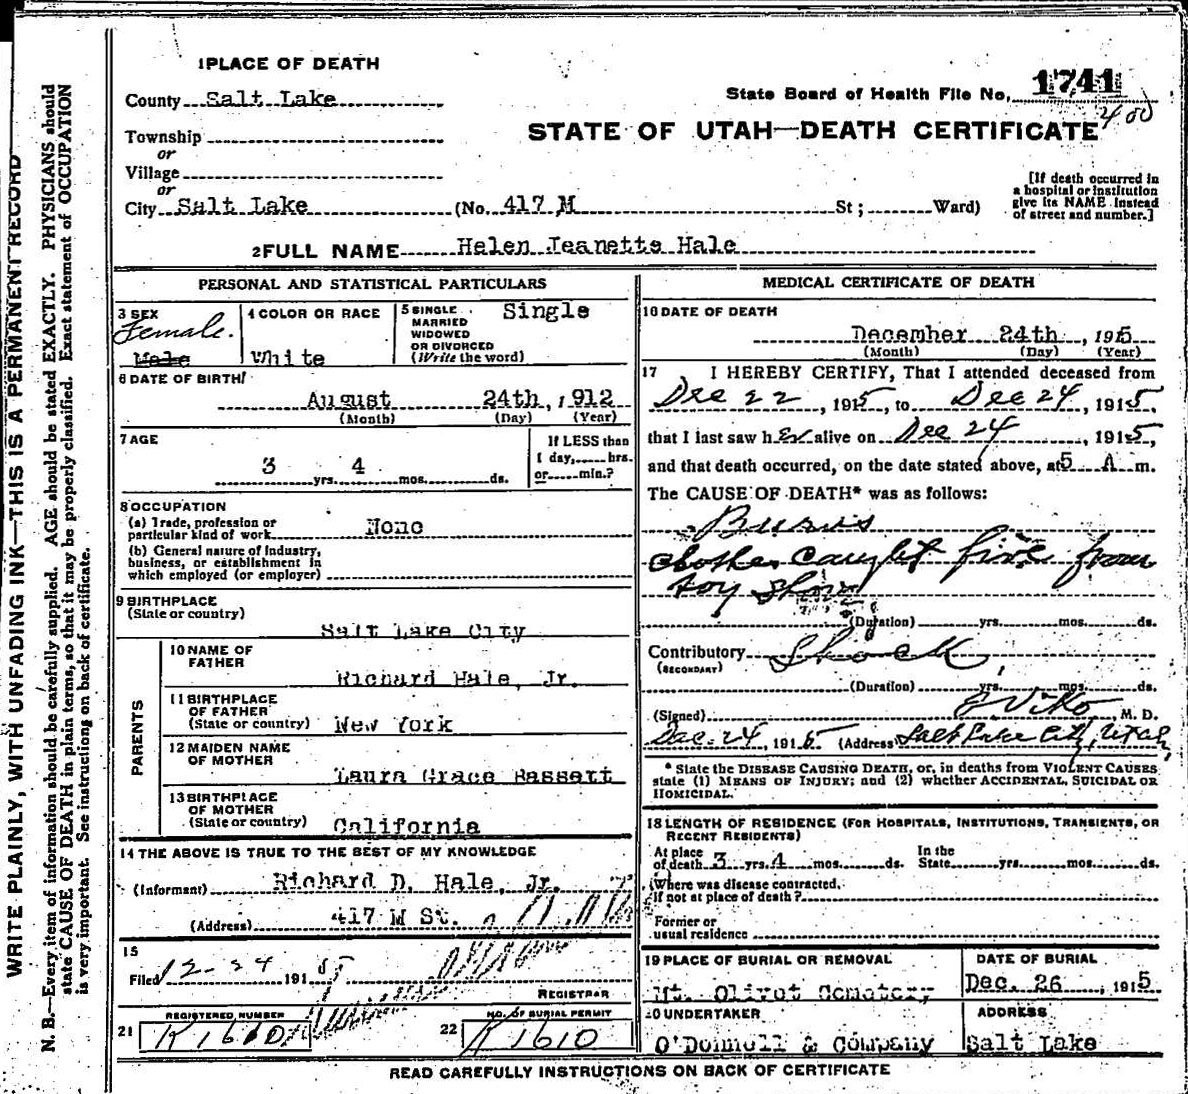 WRITE PLAINLY, WITH UNFADING INK—THIS IS A PERMANENT RECORD
N. B.—Every item of information should be carefully supplied. AGE should be stated EXACTLY. PHYSICIANS should
state CAUSE OF DEATH in plain terms, so that it may be properly classified. Exact statement of OCCUPATION
is very important. See instructions on back of certificate.
1 PLACE OF DEATH
County Salt Lake
Township
or
Village
or
City Salt Lake (No. 417 M St; Ward)
State Board of Health File No. 1741
400
STATE OF UTAH—DEATH CERTIFICATE
[If death occurred in
a hospital or institution
give its NAME instead
of street and number.]
2 FULL NAME Helen Jeanette Hale
PERSONAL AND STATISTICAL PARTICULARS
3 SEX
Female.
Male
4 COLOR OR RACE
White
5 SINGLE
MARRIED
WIDOWED
OR DIVORCED
(Write the word)
Single
6 DATE OF BIRTH
August 24th, 1912
(Month) (Day) (Year)
7 AGE
3 yrs. 4 mos. ds.
If LESS than
1 day, hrs.
or min.?
8 OCCUPATION
(a) Trade, profession or
particular kind of work None
(b) General nature of industry,
business, or establishment in
which employed (or employer)
9 BIRTHPLACE
(State or country)
Salt Lake City
PARENTS
10 NAME OF
FATHER
Richard Hale, Jr.
11 BIRTHPLACE
OF FATHER
(State or country) New York
12 MAIDEN NAME
OF MOTHER
Laura Grace Bassett
13 BIRTHPLACE
OF MOTHER
(State or country) California
14 THE ABOVE IS TRUE TO THE BEST OF MY KNOWLEDGE
(Informant) Richard D. Hale, Jr.
(Address) 417 M St.
15
Filed 12-24 1915
REGISTRAR
21 REGISTERED NUMBER
K1660
22 NO. OF BURIAL PERMIT
K1610
MEDICAL CERTIFICATE OF DEATH
16 DATE OF DEATH
December 24th, 1915
(Month) (Day) (Year)
17 I HEREBY CERTIFY, That I attended deceased from
Dec 22, 1915, to Dec 24, 1915,
that I last saw her alive on Dec 24, 1915,
and that death occurred, on the date stated above, at 5 A m.
The CAUSE OF DEATH* was as follows:
Burns
clothes caught fire from
toy
(Duration) yrs. mos. ds.
Contributory Shock
(SECONDARY)
(Duration) yrs. mos. ds.
(Signed) M. D.
Dec. 24, 1915. (Address) Salt Lake City, Utah,
* State the DISEASE CAUSING DEATH, or, in deaths from VIOLENT CAUSES
state (1) MEANS OF INJURY; and (2) whether ACCIDENTAL, SUICIDAL OR
HOMICIDAL.
18 LENGTH OF RESIDENCE (FOR HOSPITALS, INSTITUTIONS, TRANSIENTS, OR
RECENT RESIDENTS)
At place
of death 3 yrs. 4 mos. ds.
In the
State yrs. mos. ds.
Where was disease contracted,
if not at place of death?
Former or
usual residence
19 PLACE OF BURIAL OR REMOVAL
Mt. Olivet Cemetery,
DATE OF BURIAL
Dec. 26, 1915
20 UNDERTAKER
O'Donnell & Company
ADDRESS
Salt Lake
READ CAREFULLY INSTRUCTIONS ON BACK OF CERTIFICATE